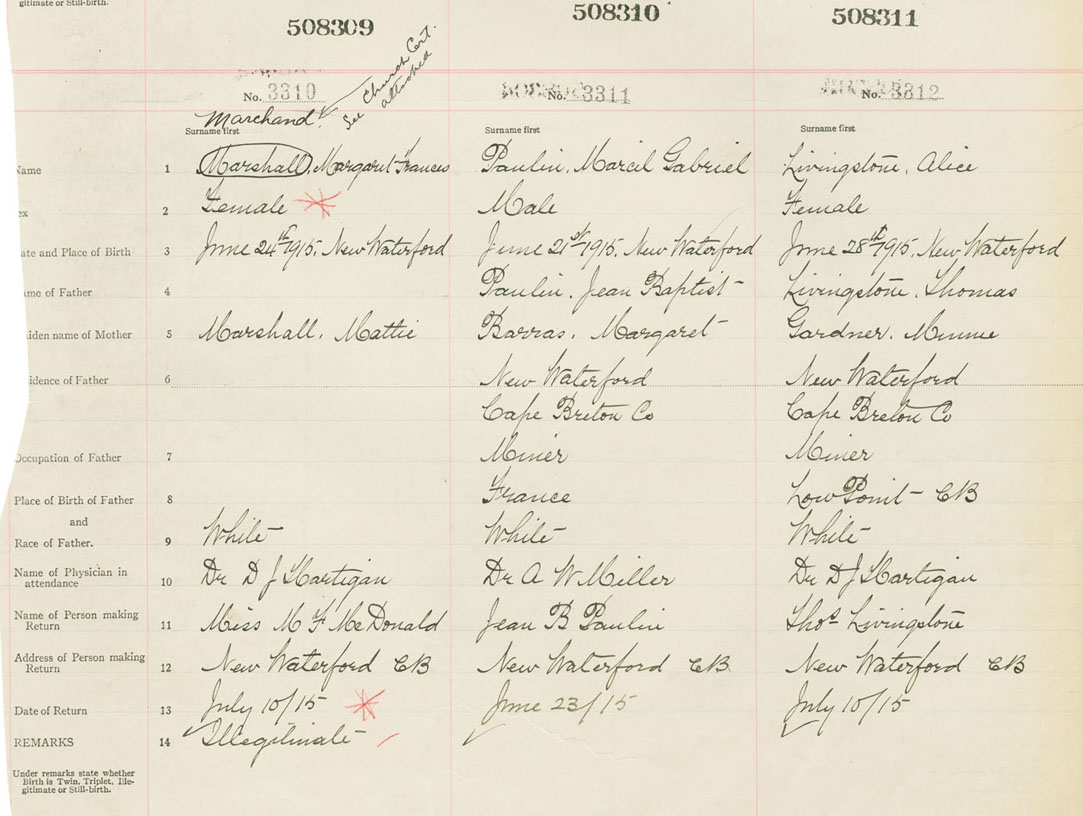 gitimate or Still-birth.
508309 508310 508311
See Church Cert. attached
No. 3310 No. 3311 No. 3312
Marchand
Surname first Surname first Surname first
Name 1 Marshall, Margaret Frances Paulin, Marcil Gabriel Livingstone, Alice
ex 2 Female Male Female
ate and Place of Birth 3 June 24th 1915, New Waterford June 21st 1915, New Waterford June 28th 1915, New Waterford
me of Father 4 Paulin, Jean Baptist Livingstone, Thomas
iden name of Mother 5 Marshall, Mattie Barras, Margaret Gardner, Minnie
idence of Father 6 New Waterford New Waterford
Cape Breton Co Cape Breton Co
Occupation of Father 7 Miner Miner
Place of Birth of Father 8 France Low Point CB
and
Race of Father. 9 White White White
Name of Physician in attendance 10 Dr D J Hartigan Dr A W Miller Dr D J Hartigan
Name of Person making Return 11 Miss M F McDonald Jean B Paulin Thos Livingstone
Address of Person making Return 12 New Waterford CB New Waterford CB New Waterford CB
Date of Return 13 July 10/15 June 23/15 July 10/15
REMARKS 14 Illegitimate
Under remarks state whether
Birth is Twin, Triplet, Ille-
gitimate or Still-birth.